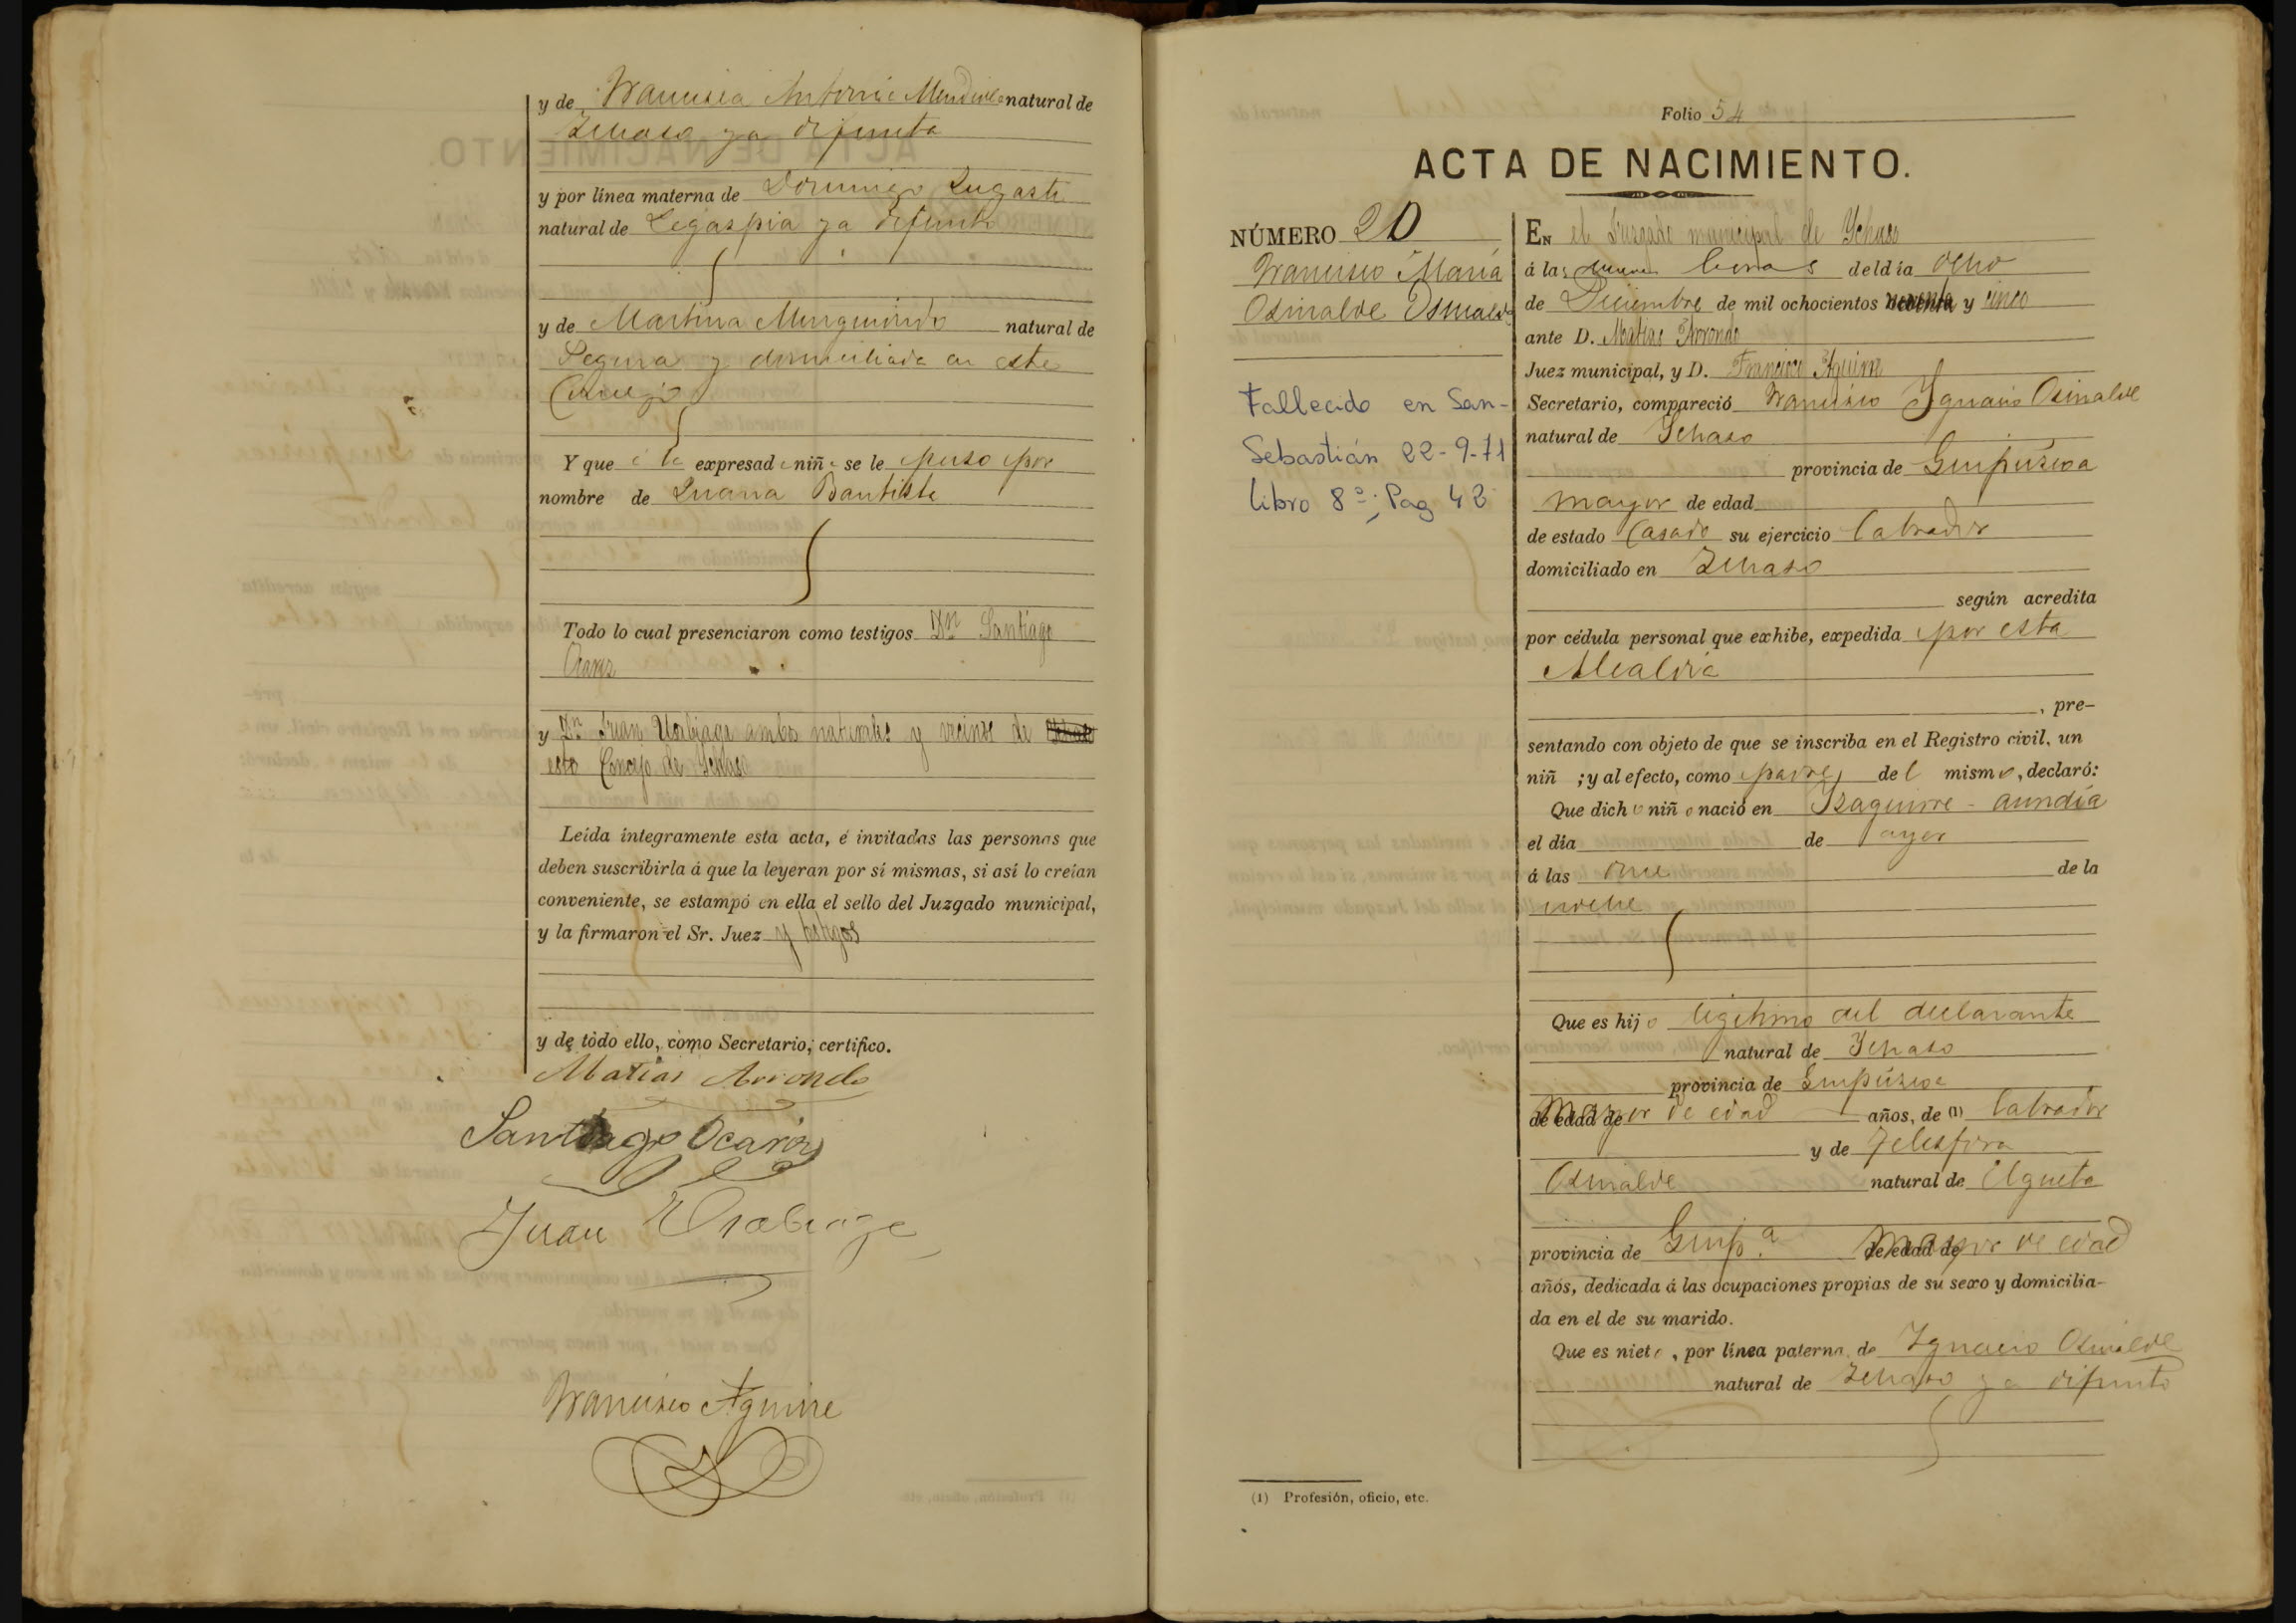 y de Francisca Antonia Mendiola natural de
Ichaso ya difunta
y por línea materna de Domingo Lugasti
natural de Legaspia ya difunto
y de Martina Minguiondo natural de
Segura y domiciliada en este
Concejo
Y que á la expresada niña se le puso por
nombre de Juana Bautista
Todo lo cual presenciaron como testigos Dn Santiago
Ocariz
y Dn Juan Urabiaga ambos naturales y vecinos de
este Concejo de Ichaso
Leída íntegramente esta acta, é invitadas las personas que
deben suscribirla á que la leyeran por sí mismas, si así lo creían
conveniente, se estampó en ella el sello del Juzgado municipal,
y la firmaron el Sr. Juez y testigos
y de todo ello, como Secretario, certifico.
Matias Arrondo
Santiago Ocariz
Juan Urabiaga
Francisco Aguirre
Folio 54
ACTA DE NACIMIENTO.
NÚMERO 20
Francisco María
Osinalde Osinalde
Fallecido en San-
Sebastián 22-9-71
libro 8º; Pag 42
En el Juzgado municipal de Ychaso
á las nueve horas del día ocho
de Diciembre de mil ochocientos noventa y cinco
ante D. Matias Arrondo
Juez municipal, y D. Francisco Aguirre
Secretario, compareció Francisco Ygnacio Osinalde
natural de Ychaso
provincia de Guipúzcoa
mayor de edad
de estado Casado su ejercicio labrador
domiciliado en Ichaso
según acredita
por cédula personal que exhibe, expedida por esta
Alcaldía
, pre-
sentando con objeto de que se inscriba en el Registro civil, un
niñ ; y al efecto, como padre, del mismo, declaró:
Que dicho niño nació en Yzaguirre-aundía
el día de ayer
á las once de la
noche
Que es hijo legítimo del declarante
natural de Ychaso
provincia de Guipúzcoa
de edad de Mayor de edad años, de (1) labrador
y de Telesfora
Osinalde natural de Elgueta
provincia de Guip.a de edad de Mayor de edad
años, dedicada á las ocupaciones propias de su sexo y domicilia-
da en el de su marido.
Que es nieto, por línea paterna de Ygnacio Osinalde
natural de Ichaso ya difunto
(1) Profesión, oficio, etc.